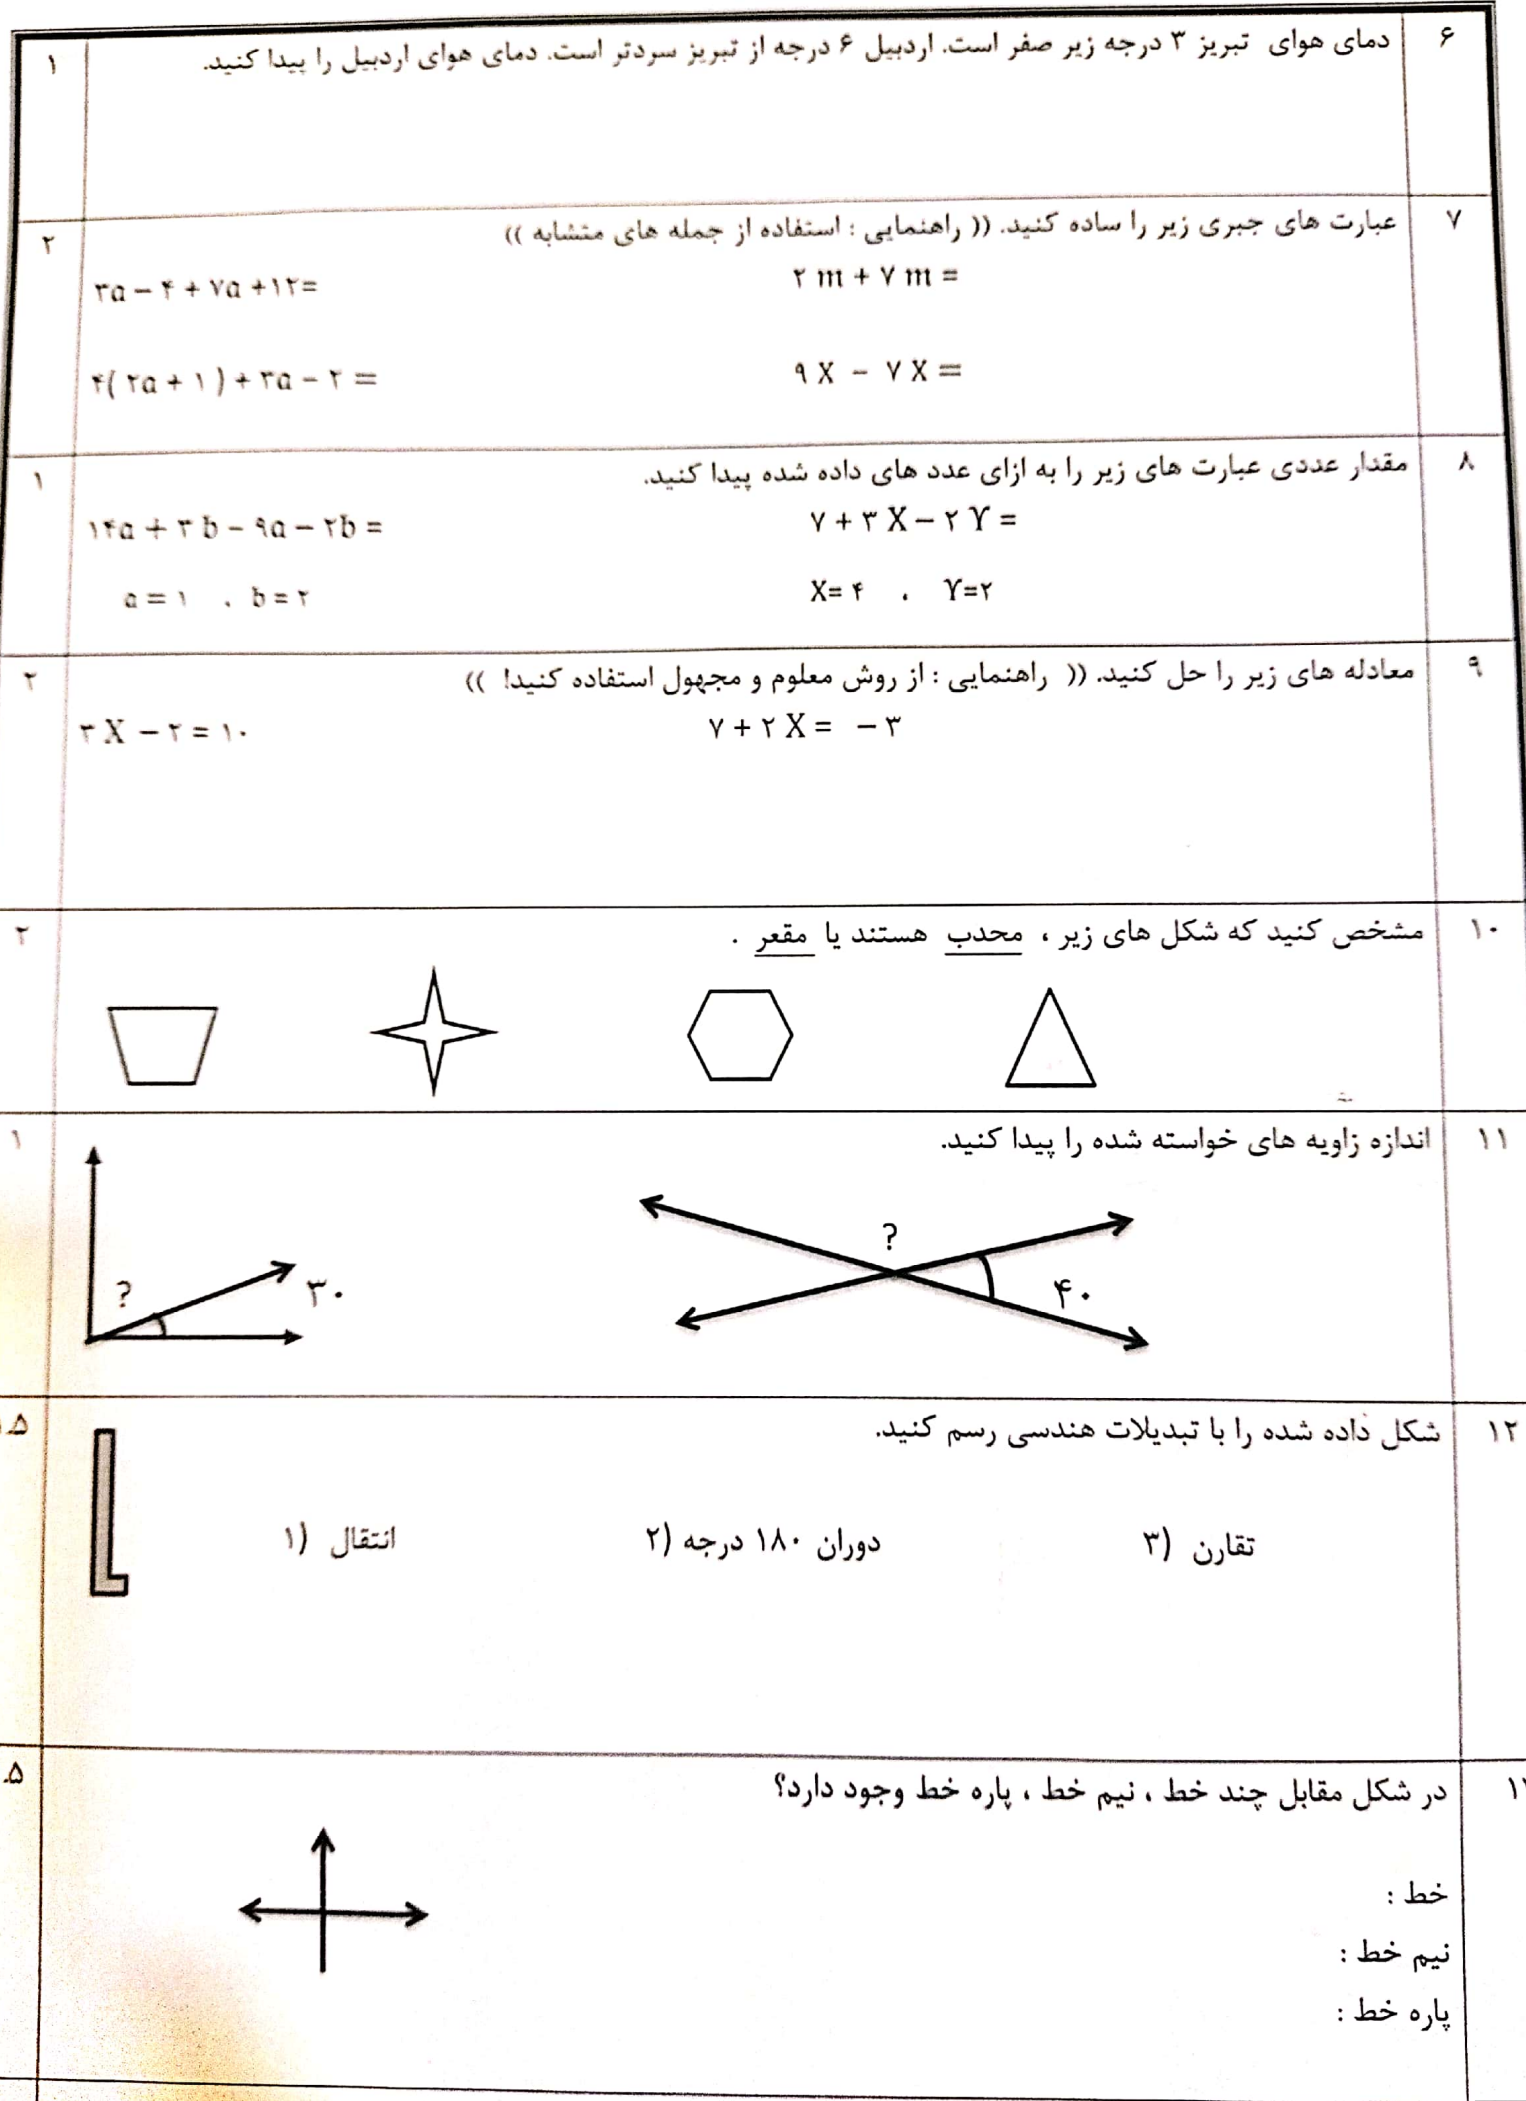 ۶ دمای هوای تبریز ۳ درجه زیر صفر است. اردبیل ۶ درجه از تبریز سردتر است. دمای هوای اردبیل را پیدا کنید. ۱
۷ عبارت های جبری زیر را ساده کنید. (( راهنمایی : استفاده از جمله های متشابه )) ۲
۲ m + ۷ m =
۳a − ۴ + ۷a +۱۲=
۹ X − ۷ X =
۴( ۲a + ۱ ) + ۳a − ۲ =
۸ مقدار عددی عبارت های زیر را به ازای عدد های داده شده پیدا کنید. ۱
۷ + ۳ X − ۲ Y =
۱۴a + ۳ b − ۹a − ۲b =
X= ۴ ، Y=۲
a = ۱ ، b = ۲
۹ معادله های زیر را حل کنید. (( راهنمایی : از روش معلوم و مجهول استفاده کنید! )) ۲
۷ + ۲ X = − ۳
۳ X − ۲ = ۱۰
۱۰ مشخص کنید که شکل های زیر ، محدب هستند یا مقعر . ۲
۱۱ اندازه زاویه های خواسته شده را پیدا کنید. ۱
?
۴۰
?
۳۰
۱۲ شکل داده شده را با تبدیلات هندسی رسم کنید. .۵
۱) انتقال
۲) دوران ۱۸۰ درجه
۳) تقارن
در شکل مقابل چند خط ، نیم خط ، پاره خط وجود دارد؟ .۵
خط :
نیم خط :
پاره خط :